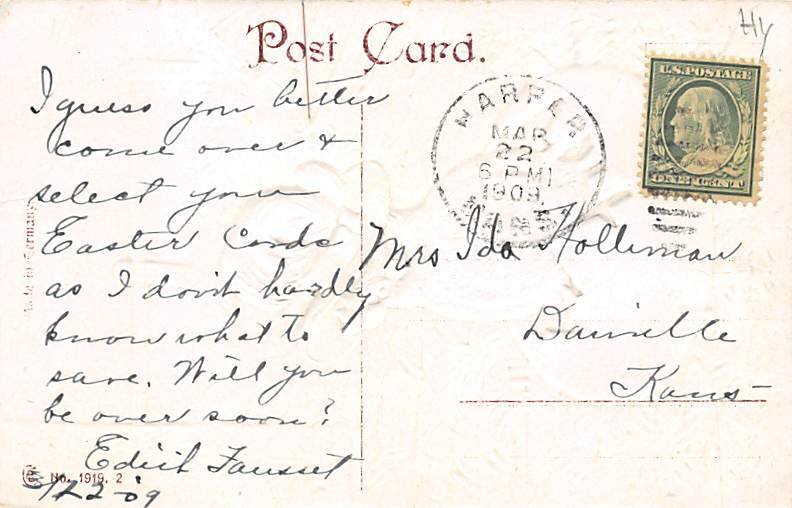 Hy
Post Card.
U.S. POSTAGE
HARPER
MAR
22
6 PM
1909
KANS.
I guess you better
come over &
select your
Easter Cards
as I don't hardly
know what to
save. Will you
be over soon?
Edith Fausset
3/22-09
Mrs Ida Holleman
Danville
Kans-
Made in Germany
No. 1919. 2